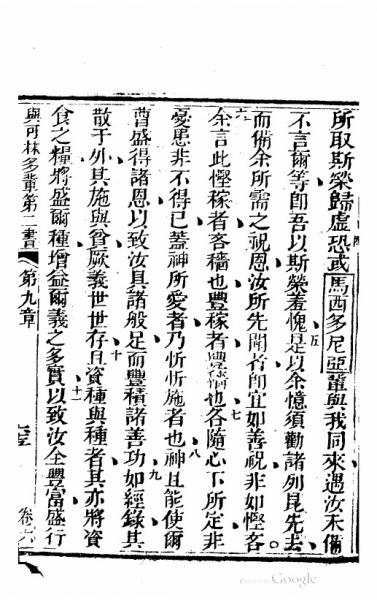 所取斯榮歸虛恐或馬西多尼亞輩與我同來遇汝未備
不言爾等卽吾以斯榮羞愧五是以余憶須勸諸列昆先去
而備余所需之祝恩汝所先聞者卽宜如善祝非如慳客。
六余言此慳稼者吝穡也豐稼者豐穡也七各隨心下所定非
憂患非不得已蓋神所愛者乃忻忻施者也八神且能使爾
曹盛得諸恩以致汝具諸般足而豐積諸善功九如經錄其
散于外其施與貧厥義世世存十且資種與種者其亦將資
食之糧將盛爾種增益爾義之多實十一以致汝全豐富盛行
與可林多輩第二書 第九章 卷六
Google